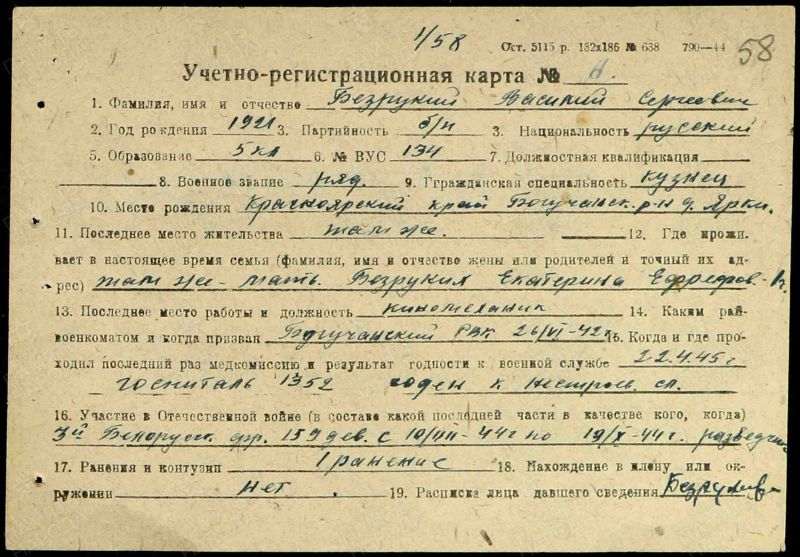 1/58 Ост. 5115 р. 182х186 № 638 790—44 58
Учетно-регистрационная карта № А.
1. Фамилия, имя и отчество Безруких Василий Сергеевич
2. Год рождения 1921 3. Партийность б/п 3. Национальность русский
5. Образование 5 кл 6. № ВУС 134 7. Должностная квалификация
8. Военное звание ряд. 9. Ггражданская специальность кузнец
10. Место рождения Красноярский край Богучанск. р-н д. Ярки.
11. Последнее место жительства там же. 12. Где прожи-
вает в настоящее время семья (фамилия, имя и отчество жены или родителей и точный их ад-
рес) там же - мать. Безруких Екатерина
13. Последнее место работы и должность киномеханик 14. Каким рай-
военкоматом и когда призван Богучанский РВК 26/VI-42г 15. Когда и где про-
ходил последний раз медкомиссию и результат годности к военной службе 22.4.45г
госпиталь 1352 годен к нестроев. сл.
16. Участие в Отечественной войне (в составе какой последней части в качестве кого, когда)
3й Белорусск. фр. 159 с 10/VII-44г по 19/X-44г. разведчик
17. Ранения и контузип 1 ранение 18. Нахождение в плену или ок-
ружении нет 19. Расписка лица давшего сведения